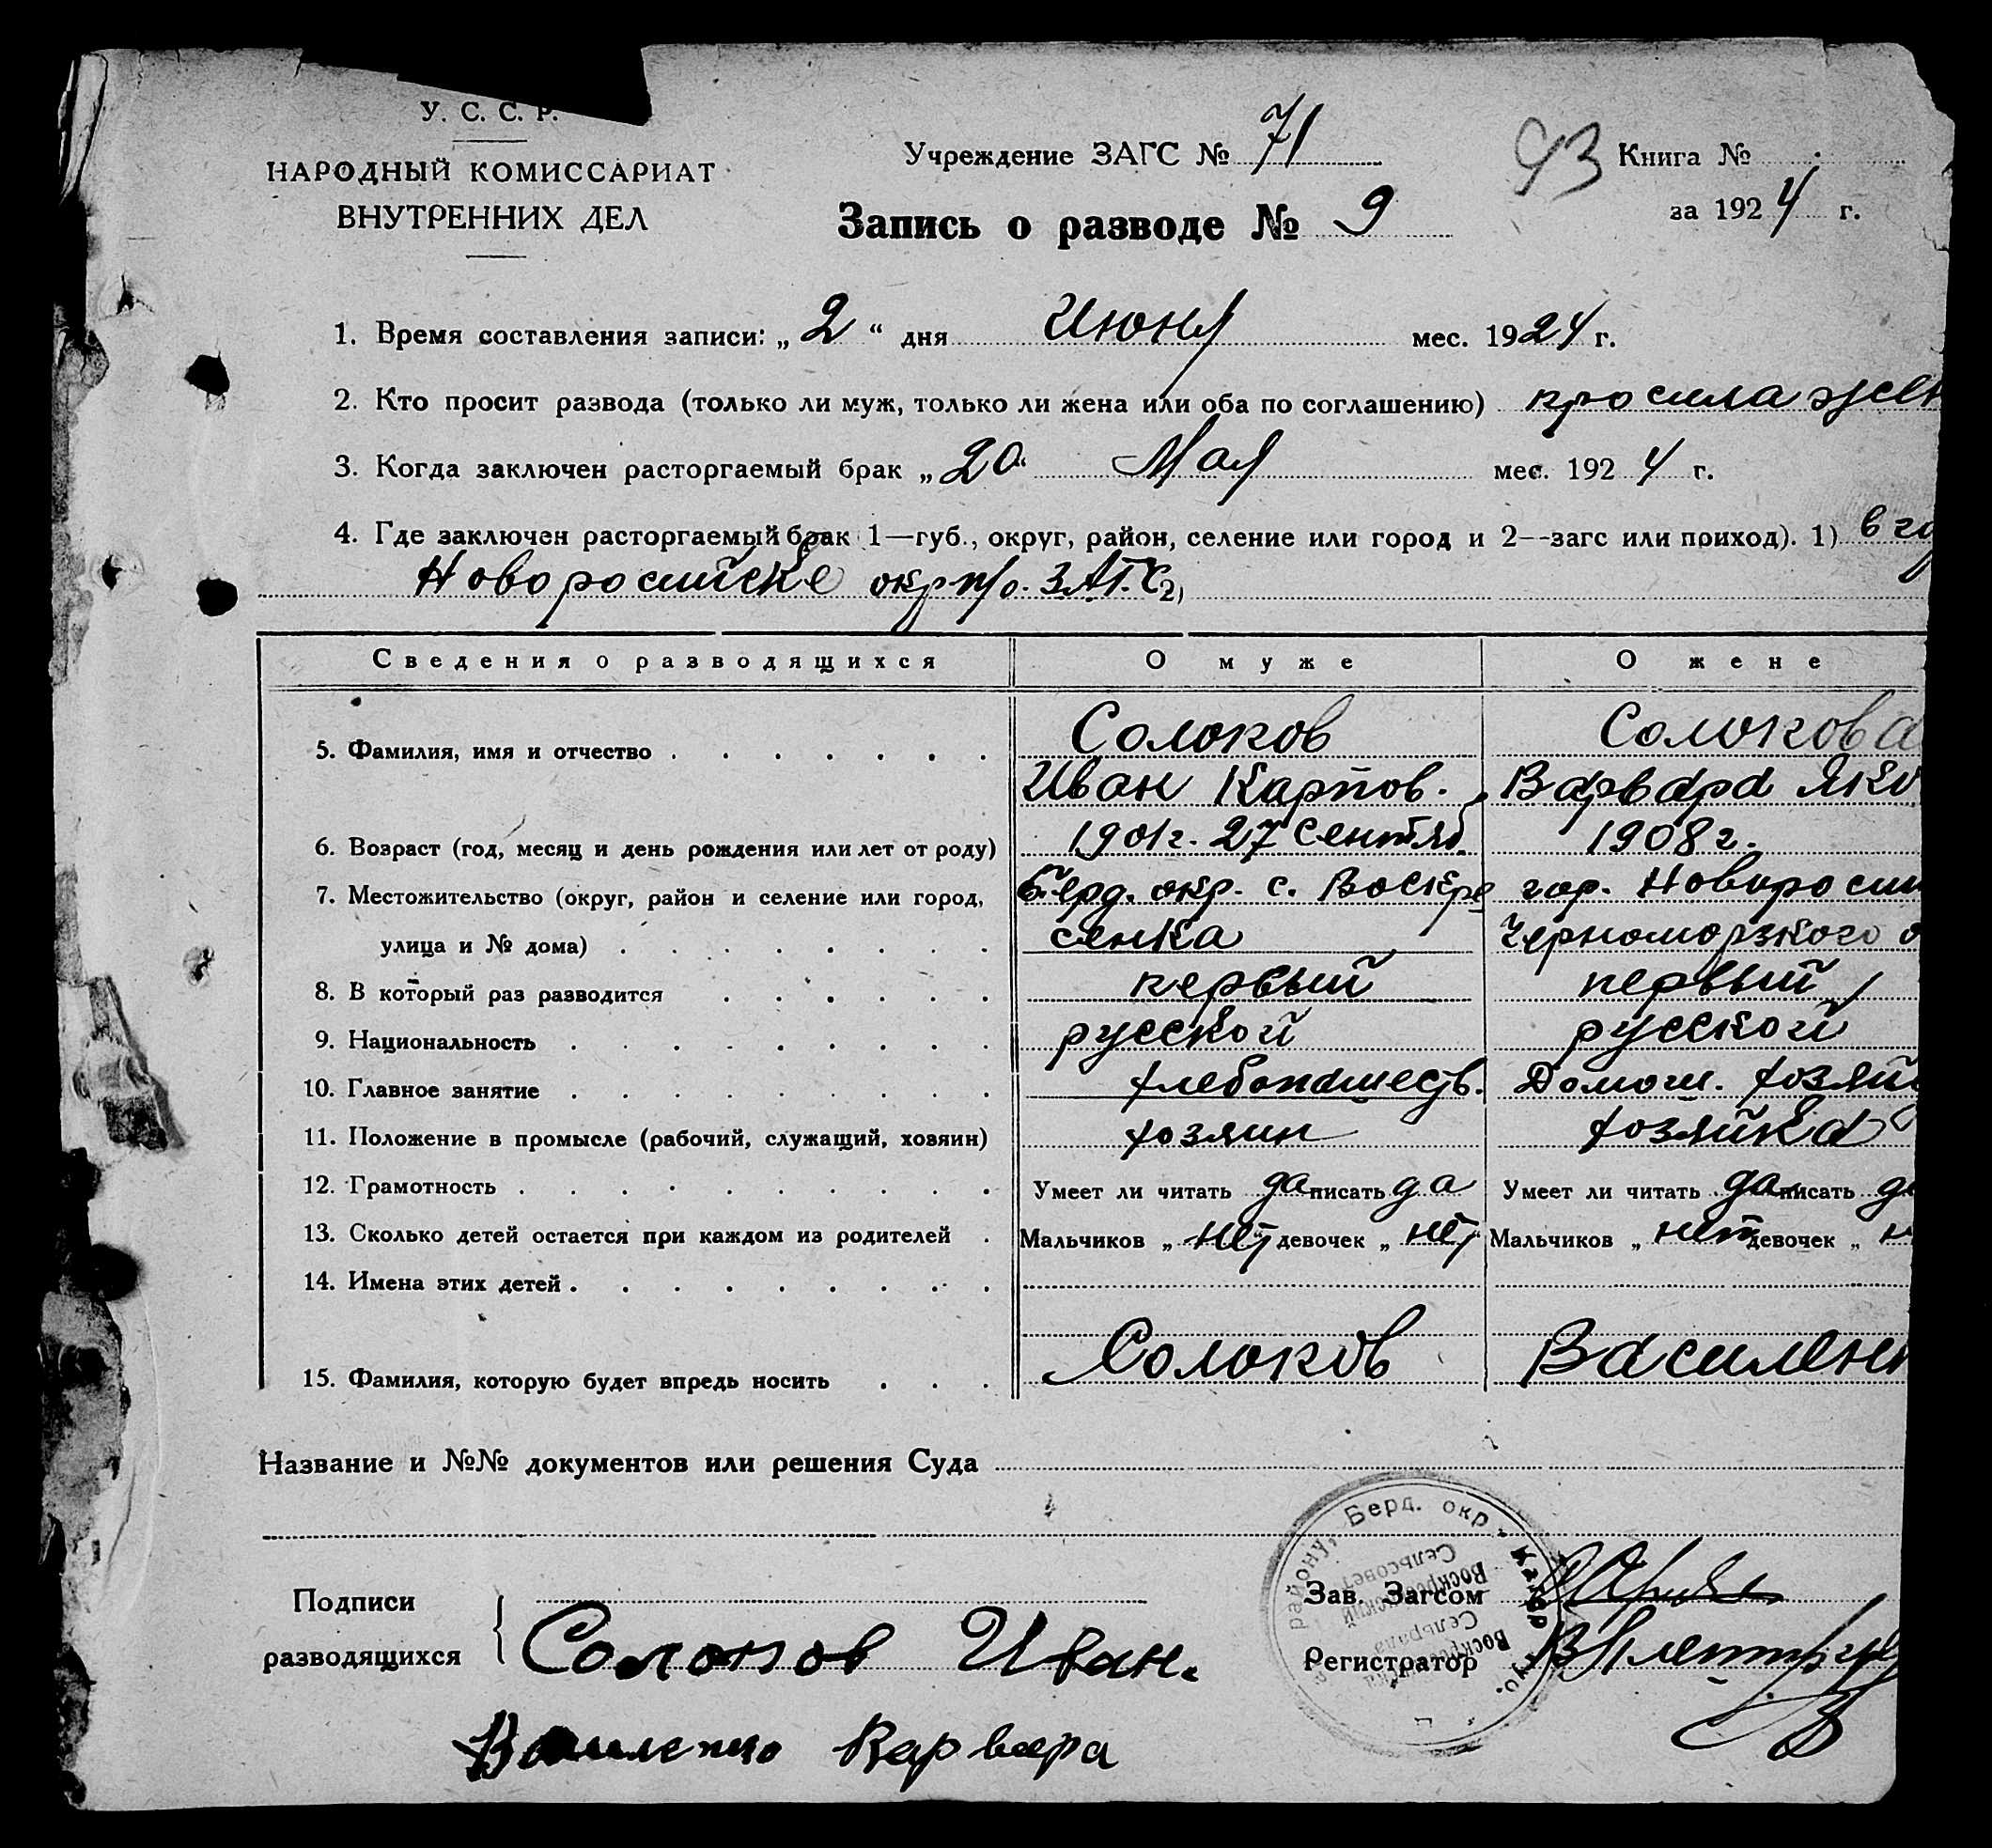 У. С. С. Р.
НАРОДНЫЙ КОМИССАРИАТ
ВНУТРЕННИХ ДЕЛ
Учреждение ЗАГС № 71
93 Книга №
за 1924 г.
Запись о разводе № 9
1. Время составления записи: „2“ дня Июня мес. 1924 г.
2. Кто просит развода (только ли муж, только ли жена или оба по соглашению) просила жен
3. Когда заключен расторгаемый брак „20“ Мая мес. 1924 г.
4. Где заключен расторгаемый брак 1—губ., округ, район, селение или город и 2—загс или приход). 1) в го
Новоросийске окр п/о. ЗАГ.С 2)
Сведения о разводящихся О муже О жене
5. Фамилия, имя и отчество Солоков Солокова
Иван Карпов. Варвара Яко
6. Возраст (год, месяц и день рождения или лет от роду) 1901г. 27 Сентяб. 1908 г.
7. Местожительство (округ, район и селение или город, Берд. окр. с. Воскре гор. Новороси
улица и № дома) сенка Черноморзкого о
8. В который раз разводится первый первый
9. Национальность русской русской
10. Главное занятие хлебопашеств. Домош. хозяй
11. Положение в промысле (рабочий, служащий, хозяин) хозяин хозяйка
12. Грамотность Умеет ли читать да писать да Умеет ли читать да писать да
13. Сколько детей остается при каждом из родителей Мальчиков „ нет девочек „ нет Мальчиков „ нет девочек „ н
14. Имена этих детей
15. Фамилия, которую будет впредь носить Солоков Василен
Название и №№ документов или решения Суда
району, Берд. окр.
Сельсовет
Подписи
разводящихся
Зав. Загсом
Солоков Иван.
Регистратор
Василенко Варвара